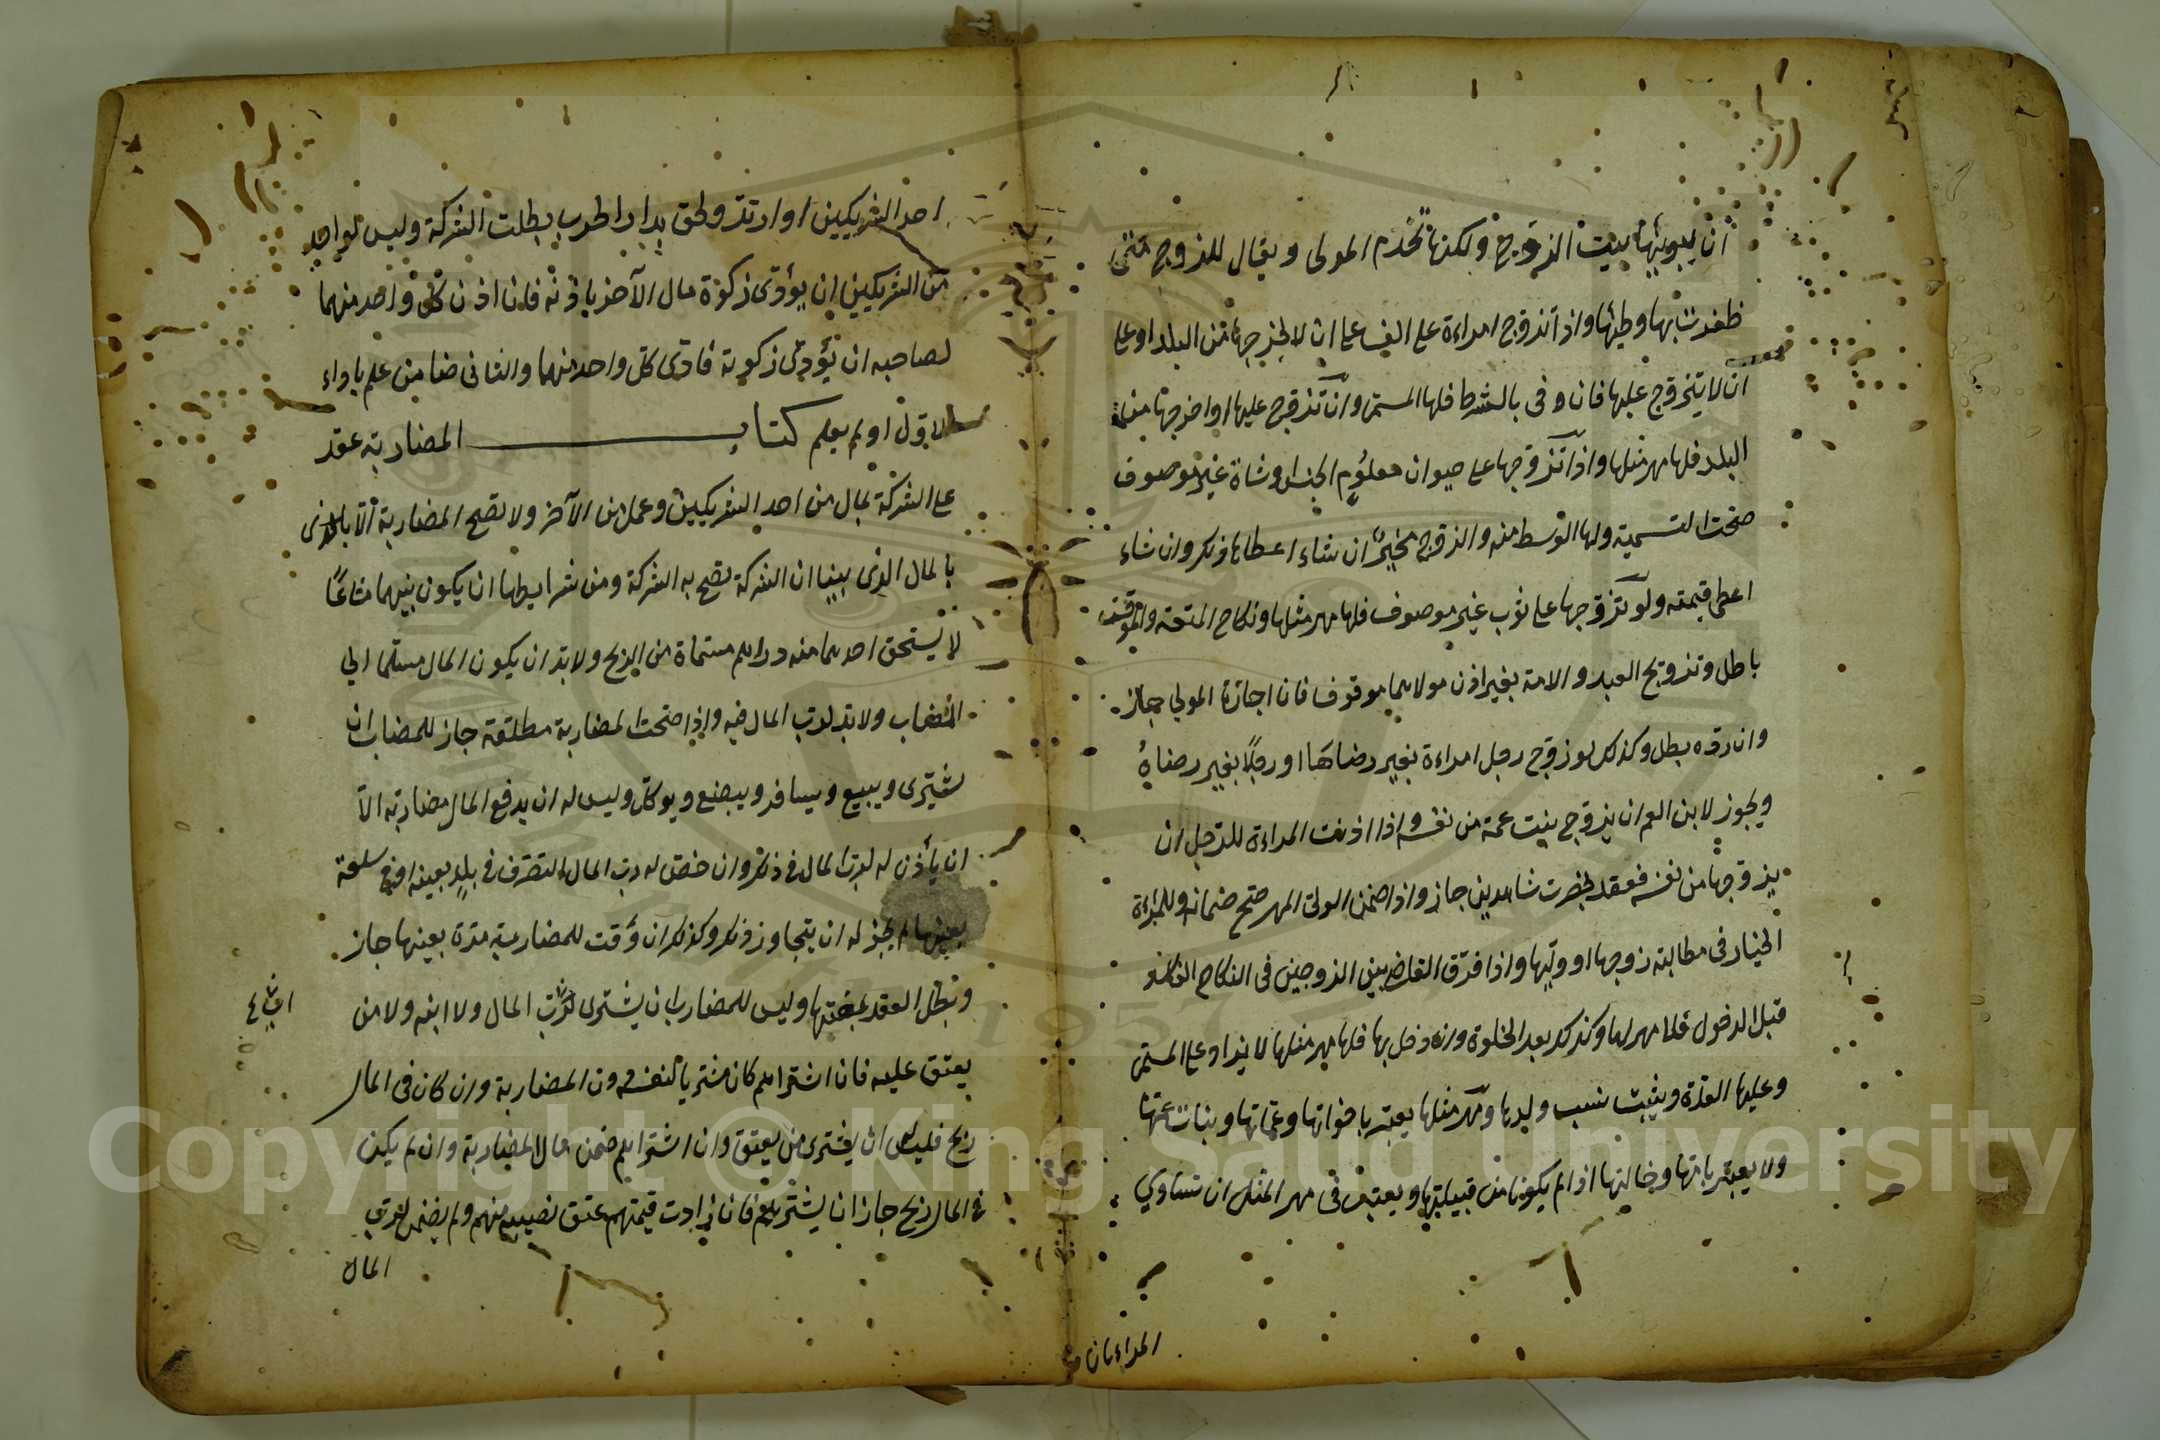 ان يبويها بيت الزوج ولكنها تخدم المولى ويقال للزوج متى
ظفرت بها وطيتها واذا تزوج امراءة على الف على ان لا يخرجها من البلد او على
ان لا يتزوج عليها فان وفى بالشرط فلها المسمى وان تزوج عليها او اخرجها من
البلد فلها مهر مثلها واذا تزوجها على حيوان معلوم الجنس وشاة غير موصوف
صحت التسمية ولها الوسط منه والزوج مخير ان شاء اعطاها ذلك وان شاء
اعطى قيمته ولو تزوجها على ثوب غير موصوف فلها مهر مثلها ونكاح المتعة والموقت
باطل وتزويج العبد والامة بغير اذن مولاهما موقوف فان اجازة المولي جاز
وان رده بطل وكذلك لو زوج رجل امراءة بغير رضاها او رجلا بغير رضاه
ويجوز لابن العم ان يزوج بنت عمه من نفسه واذا اذنت المراءة للرجل ان
يزوجها من نفسه فعقد بحضرت شاهدين جاز واذا ضمن الولى المهر صح ضمانه وللمراءة
الخيار فى مطالبة زوجها او وليها واذا فرق القاضى بين الزوجين فى النكاح الفاسد
قبل الدخول فلا مهر لها وكذلك بعد الخلوة وان دخل بها فلها مهر مثلها لا يزاد على المسمى
وعليها العدة ويثبت نسب ولدها ومهر مثلها يعتبر باخواتها وعماتها وبنات عمها
ولا يعتبر بامها وخالتها اذا لم يكونا من قبيلتها ويعتبر فى مهر المثل ان تتساوي
المراءتان
احد الشريكين او ارتد ولحق بدار الحرب بطلت الشركة وليس لواحد
من الشريكين ان يؤدى زكوة مال الآخر باذنه فان اذن كل واحد منهما
لصاحبه ان يؤدى زكوته فادى كل واحد منهما والثانى ضامن علم باداء
الاول او لم يعلم كتاب المضاربة عقد
على الشركة بمال من احد الشريكين وعمل من الآخر ولا تصح المضاربة الا
بالمال الذى بينا ان الشركة تصح به الشركة ومن شرايطها ان يكون بينهما مشاعا
لا يستحق احدهما منه دراهم مسماة من الربح ولا بد ان يكون المال مسلما الي
المضاب ولا يد لرب المال فيه واذا صحت المضاربة مطلقة جاز للمضاب ان
يشترى ويبيع ويسافر ويبضع ويوكل وليس له ان يدفع المال مضاربة الا
ان يأذن له لرب المال فى ذلك وان خص له رب المال التصرف فى بلد بعينه او فى سلعة
بعينها لم يجز له ان يتجاوز ذلك وكذلك ان وقت للمضاربة مدة بعينها جاز
وبطل العقد بمضيها وليس للمضارب ان يشترى لرب المال ولا ابنه ولا من
يعتق عليه فان اشتراهم كان مشتريا لنفسه دون المضاربة وان كان فى المال
ربح فليس ان يشترى من يعتق وان اشتراهم ضمن مال المضاربة وان لم يكن
فى المال ربح جاز ان يشتريهم فان زادت قيمتهم عتق نصيبه منهم ولم يضمن لرب
المال
Copyright © King Saud University
1957